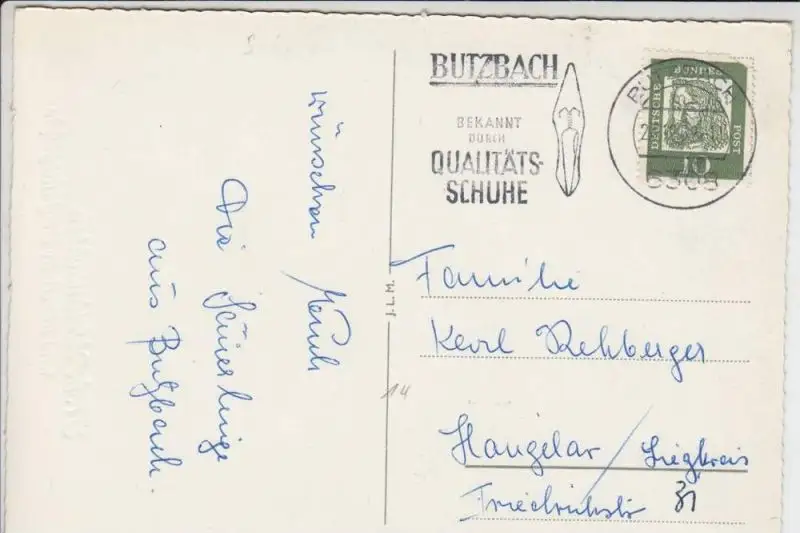 wünschen Euch
Die Säuerlinge
aus Butzbach
BUTZBACH
BEKANNT
DURCH
QUALITÄTS-
SCHUHE
DEUTSCHE BUNDES POST
10
6308
J.L.M.
14
Familie
Karl Rehberger
Hangelar / Siegkreis
Friedrichstr 31